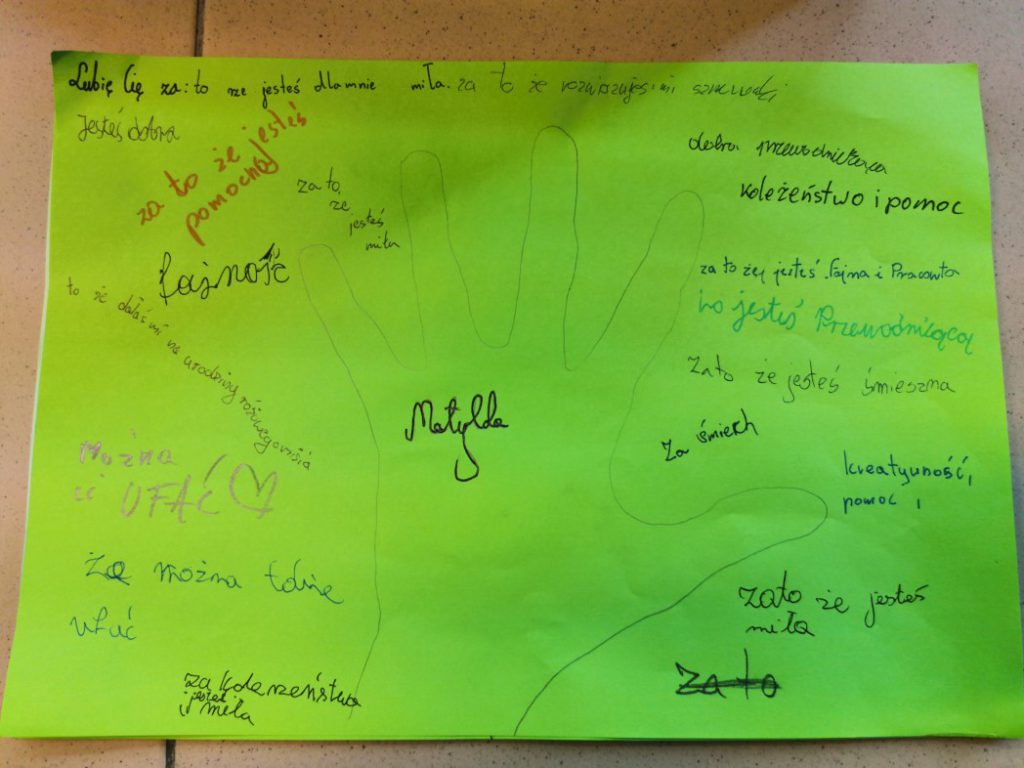 Lubię Cię za: to że jesteś dla mnie miła. za to że
Jesteś dobra
za to że jesteś
pomocną
za to
że
jesteś
miła
fajność
to że dałaś mi na urodziny różowego misia
Można
ci UFAĆ
Że można tobie
ufać
za koleżeństwo
i jesteś
miła
Matylda
dobra przewodnicząca
koleżeństwo i pomoc
za to żej jesteś fajna i Pracowita
bo jesteś Przewodniczącą
Za to że jesteś śmieszna
Za śmiech
kreatywność,
pomoc ,
Za to że jesteś
miła
Za to